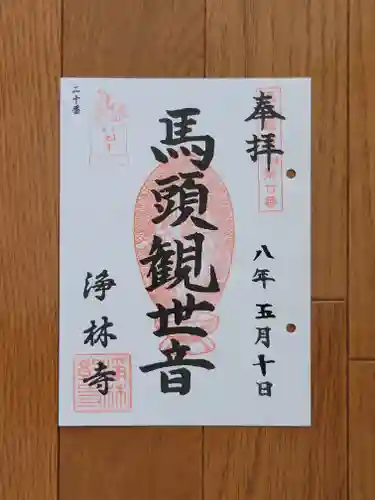 奉拝
八年五月十日
馬頭観世音
浄林寺
二十番